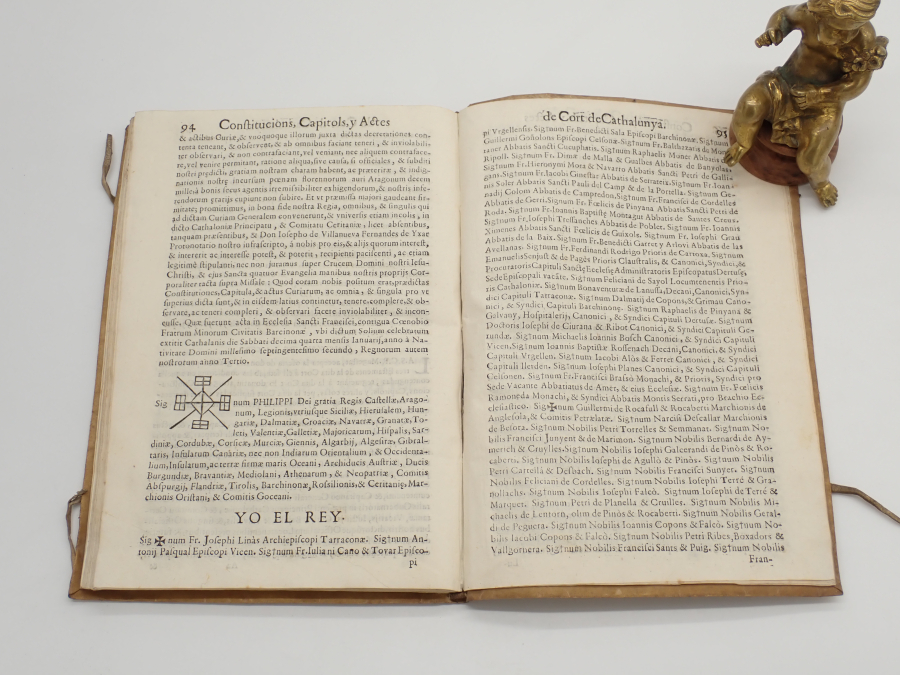 94 Constitucions, Capitols, y Actes
& actibus Curiæ, & vnoquoque illorum juxta dictas decretationes contenta
teneant, & observent, & ab omnibus faciant teneri, & inviolabiliter
observari, & non contrafaciant, vel veniant, nec aliquem contrafacere,
vel venire permitant, ratione aliqua, sive causa, si officiales, & subditi
nostri prædicti gratiam nostram charam habent, ac præter iræ, & indignationis
nostræ incursum pœnam florenorum auri Aragonum decem
millia bonis secus agentis irremisibiliter exhigendorum, & nostris inferendorum
ærarijs cupiunt non subire. Et vt præmissa majori gaudeant firmitate;
promittimus, in bona fide nostra Regia, omnibus, & singulis qui
ad dictam Curiam Generalem convenerunt, & vniversis etiam incolis, in
dicto Cathaloniæ Principatu, & Comitatu Ceritaniæ, licet absentibus,
tanquam præsentibus, & Don Josepho de Villanueva Fernandes de Yxar
Protonotario nostro infrascripto, à nobis pro eis, & alijs quorum interest,
& intererit ac interesse potest, & poterit, recipienti paciscenti, ac etiam
legitimè stipulanti, nec non juramus super Crucem Domini nostri Iesu-
Christi, & ejus Sancta quatuor Evangelia manibus nostris proprijs Corporaliter
tacta supra Missale: Quod eorum nobis positum erat, prædictas
Constitutiones, Capitula, & actus Curiarum, ac omnia, & singula pro vt
superius dicta sunt, & in eisdem latius continetur, tenere, complere, & observare,
ac teneri compleri, & observari facere inviolabiliter, & inconcusse.
Quæ fuerunt acta in Ecclesia Sancti Francisci, contigua Cœnobio
Fratrum Minorum Civitatis Barcinonæ, vbi dictum Solium celebratum
extitit Cathalanis die Sabbati decima quarta mensis Ianuarij, anno à Nativitate
Domini millesimo septingentesimo secundo, Regnorum autem
nostrorum anno Tertio.
Sig num PHILIPPI Dei gratia Regis Castellæ, Aragonum,
Legionis, vtriusque Siciliæ, Hierusalem, Hungariæ,
Dalmatiæ, Croaciæ, Navarræ, Granatæ, Toleti,
Valentiæ, Galletiæ, Majoricarum, Hispalis, Sardiniæ,
Cordubæ, Corsicæ, Murciæ, Giennis, Algarbij, Algesiræ, Gibraltaris,
Insularum Canariæ, nec non Indiarum Orientalium, & Occidentalium,
Insularum, ac terræ firmæ maris Oceani, Archiducis Austriæ, Ducis
Burgundiæ, Bravantiæ, Mediolani, Athenarum, & Neopatriæ, Comitis
Abspurgij, Flandriæ, Tirolis, Barchinonæ, Rosilionis, & Ceritaniæ, Marchionis
Oristani, & Comitis Goceani.
YO EL REY.
Sig✠num Fr. Josephi Linàs Archiepiscopi Tarraconæ. Sig†num Antonij
Pasqual Episcopi Vicen. Sig†num Fr. Iuliani Cano & Tovar Episcopi
de Cort de Cathalunya. 95
pi Vrgellensis. Sig†num Fr. Benedicti Sala Episcopi Barchinonæ. Sig†num
Guillermi Gosolons Episcopi Celsonæ. Sig†num Fr. Balthazaris de
Ripoll. Sig†num Fr. Dimæ de Malla & Guallbes Abbatis de Banyolas.
Sig†num Fr. Hieronymi Mora & Navarro Abbatis Sancti Petri de
Sig†num Fr. Iacobi Gineftar Abbatis de Serrateix. Sig†num Fr. Ioannis
Soler Abbatis Sancti Pauli del Camp & de la Portella. Sig†num
Golom Abbatis de Campredon. Sig†num Fr. Francisci de Cordelles
Abbatis de Gerri. Sig†num Fr. Fœlicis de Pinyana Abbatis Sancti Petri de
Roda. Sig†num Fr. Ioannis Baptistæ Montagut Abbatis de Santes Creus.
Sig†num Fr. Josephi Tressanches Abbatis de Poblet. Sig†num Fr. Ioannis
Ximenes Abbatis Sancti Fœlicis de Guixols. Sig†num Fr. Iosephi Grau
Abbatis de la Baix. Sig†num Fr. Benedicti Garret y Arlovi Abbatis de las
Avellanas. Sig†num Fr. Ferdinandi Rodrigo Prioris de Cartoxa. Sig†num
Emanuelis Sonjust & de Pagès Prioris Claustralis, & Canonici, Syndici, &
Procuratoris Capituli Sanctæ Ecclesiæ Administratoris Episcopatus Dertusæ,
Sede Episcopali vacāte. Sig†num Feliciani de Sayol Locumtenentis Prioris
Cathaloniæ. Sig†num Bonaventuræ de Lanuza, Decani, Canonici, Syndici
Capituli Tarraconæ. Sig†num Dalmatij de Copons, & Grimau Canonici,
& Syndici Capituli Barchinonę. Sig†num Raphaelis de Pinyana &
Galvany, Hospitalerij, Canonici, & Syndici Capituli Dertusæ. Sig†num
Doctoris Iosephi de Ciurana & Ribot Canonici, & Syndici Capituli Gerundæ.
Sig†num Michaelis Ioannis Bosch Canonici, & Syndici Capituli
Vicen. Sig†num Ioannis Baptistæ Rossenach Decani, Canonici, & Syndici
Capituli Vrgellen. Sig†num Iacobi Alòs & Ferrer Canonici, & Syndici
Capituli Ilerden. Sig†num Iosephi Planes Canonici, & Syndici Capituli
Celsonen. Sig†num Fr. Francisci Brassò Monachi, & Prioris, Syndici pro
Sede Vacante Abbatiatus de Amer, & eius Ecclesiæ. Sig†num Fr. Fœlicis
Ramoneda Monachi, & Syndici Abbatis Montis Serrati, pro Brachio Ecclesiastico.
Sig✠num Guillermi de Rocafull & Rocaberti Marchionis de
Anglesola, & Comitis Petrælatæ. Sig†num Narcisi Descallar Marchionis
de Besora. Sig†num Nobilis Petri Torrelles & Semmanat. Sig†num Nobilis
Francisci Junyent & de Marimon. Sig†num Nobilis Bernardi de Aymerich
& Cruylles. Sig†num Nobilis Iosephi Galcerandi de Pinòs & Rocaberti.
Sig†num Nobilis Iosephi Agulló & Pinòs. Sig†num Nobilis
Petri Cartellà & Desbach. Sig†num Nobilis Francisci Sunyer. Sig†num
Nobilis Feliciani de Cordelles. Sig†num Nobilis Iosephi Terrè & Granollachs.
Sig†num Nobilis Iosephi Falcò. Sig†num Iosephi de Terrè &
Marquet. Sig†num Petri de Planella & Cruilles. Sig†num Nobilis Michaelis
de Lentorn, olim de Pinòs & Rocaberti. Sig†num Nobilis Geraldi
de Peguera. Sig†num Nobilis Ioannis Copons & Falcò. Sig†num Nobilis
Iacobi Copons & Falcò. Sig†num Nobilis Petri Ribes, Boxadors &
Vallgornera. Sig†num Nobilis Francisci Sans & Puig. Sig†num Nobilis
Fran-